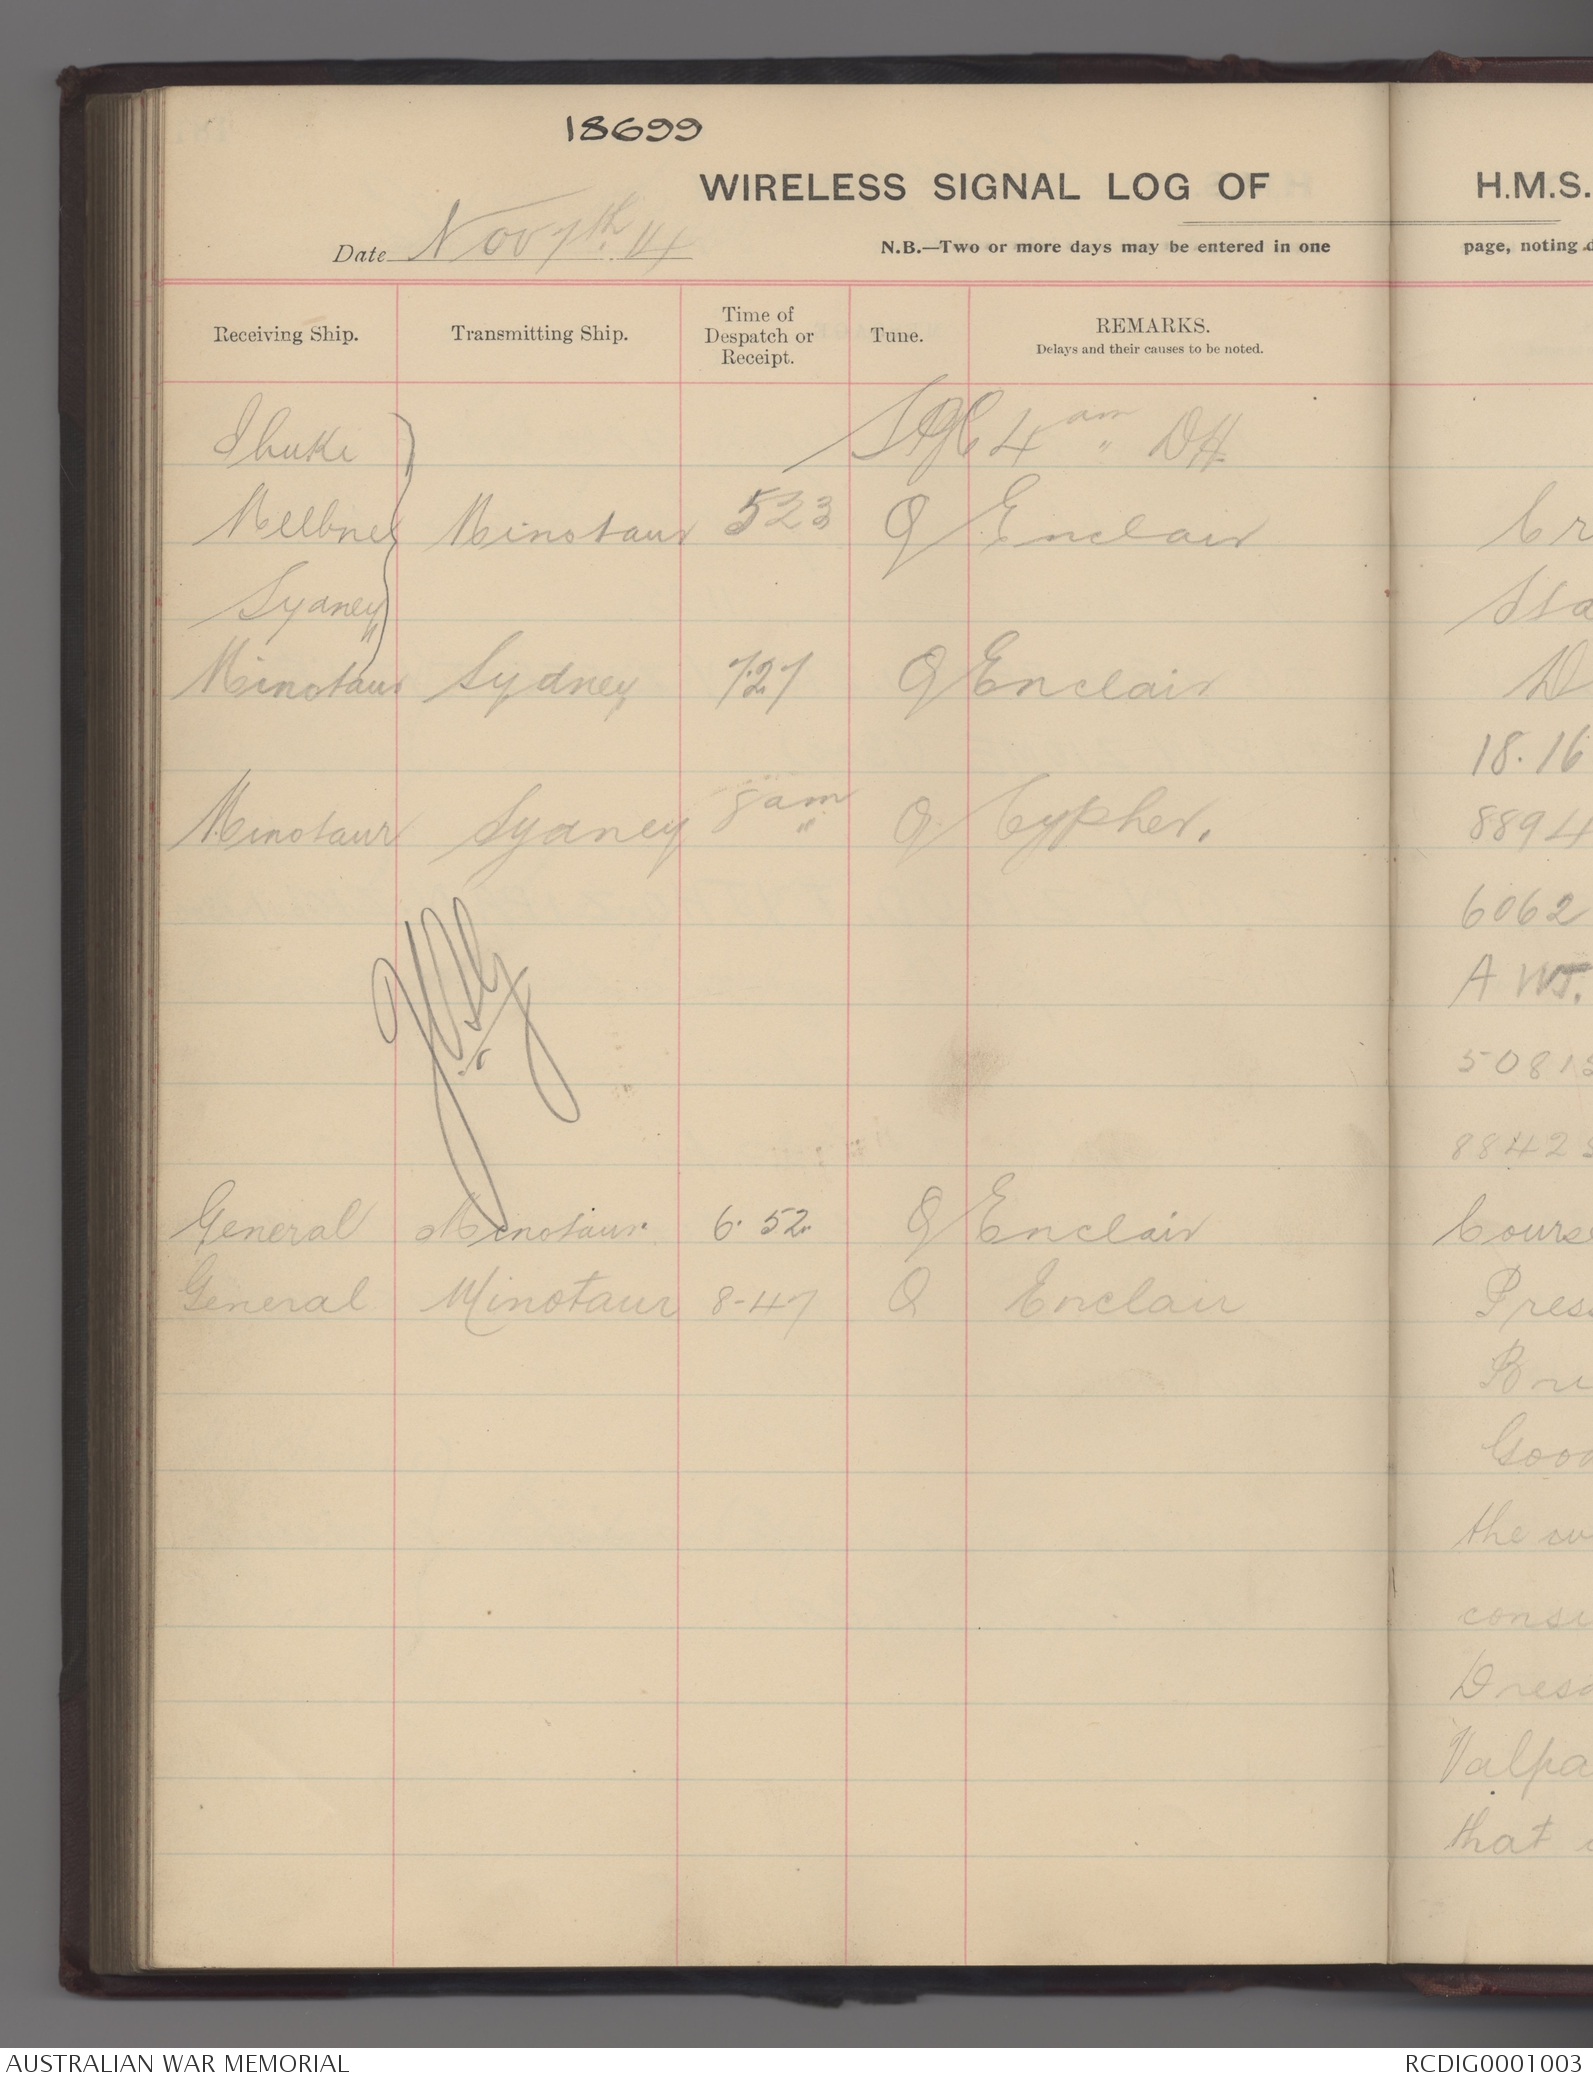 18699
WIRELESS SIGNAL LOG OF H.M.S.
Date Nov 7th 14
N.B.—Two or more days may be entered in one page, noting
Receiving Ship. Transmitting Ship. Time of Despatch or Receipt. Tune. REMARKS. Delays and their causes to be noted.
Ibuki 4 am DH
Melbne Minotaur 523 Q Enclair
Sydney
Minotaur Sydney 7.27 Q Enclair
18.16
Minotaur Sydney 8 am Q Cypher. 8894
6062
A WT.
5081
8842
General Minotaur 6.52 Q Enclair Course
General Minotaur 8-47 Q Enclair Press
Good
the
Valpa
that
AUSTRALIAN WAR MEMORIAL RCDIG0001003